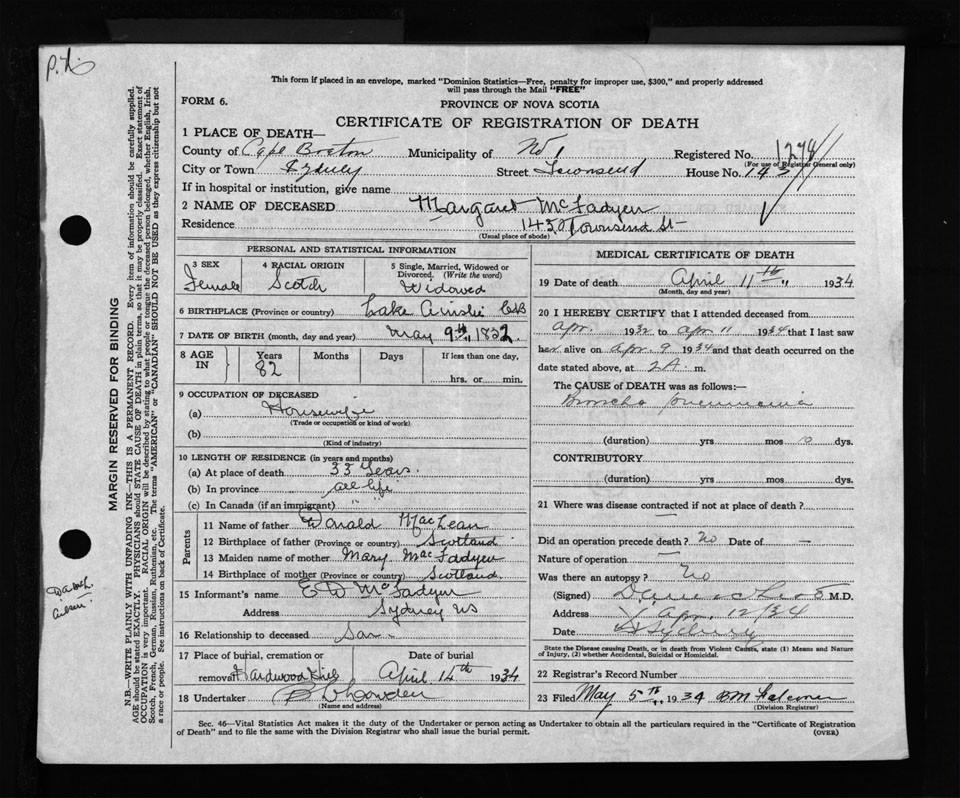 This form if placed in an envelope, marked "Dominion Statistics—Free, penalty for improper use, $300," and properly addressed
will pass through the Mail "FREE"
FORM 6.
PROVINCE OF NOVA SCOTIA
CERTIFICATE OF REGISTRATION OF DEATH
1 PLACE OF DEATH—
County of Cape Breton Municipality of No 1 Registered No. 1278
(For use of Registrar General only)
City or Town Sydney Street Townsend House No. 143
If in hospital or institution, give name
2 NAME OF DECEASED Margaret McFadyen
Residence 143 Townsend St
(Usual place of abode)
PERSONAL AND STATISTICAL INFORMATION
3 SEX Female
4 RACIAL ORIGIN Scotch
5 Single, Married, Widowed or Divorced. (Write the word) Widowed
6 BIRTHPLACE (Province or country) Lake Ainslie CB
7 DATE OF BIRTH (month, day and year) May 9th 1832
8 AGE IN Years 82 Months Days If less than one day,
hrs. or min.
9 OCCUPATION OF DECEASED
(a) Housewife
(Trade or occupation or kind of work)
(b)
(Kind of industry)
10 LENGTH OF RESIDENCE (in years and months)
(a) At place of death 33 Years.
(b) In province all life
(c) In Canada (if an immigrant) " "
Parents
11 Name of father Donald MacLean
12 Birthplace of father (Province or country) Scotland
13 Maiden name of mother Mary MacFadyen
14 Birthplace of mother (Province or country) Scotland
15 Informant's name E D McFadyen
Address Sydney NS
16 Relationship to deceased Son
17 Place of burial, cremation or removal Hardwood Hill Date of burial April 14th 1934
18 Undertaker
(Name and address)
MEDICAL CERTIFICATE OF DEATH
19 Date of death April 11th 1934
(Month, day and year)
20 I HEREBY CERTIFY that I attended deceased from
Apr. 1932 to Apr 11 1934 that I last saw
her alive on Apr. 9 1934 and that death occurred on the
date stated above, at 2 A. m.
The CAUSE OF DEATH was as follows:—
Broncho pneumonia
(duration) yrs mos dys.
CONTRIBUTORY
(duration) yrs mos dys.
21 Where was disease contracted if not at place of death?
Did an operation precede death? No Date of —
Nature of operation —
Was there an autopsy? No
(Signed) M.D.
Address Apr. 12/34
Date Sydney
State the Disease causing Death, or in death from Violent Causes, state (1) Means and Nature of Injury, (2) whether Accidental, Suicidal or Homicidal.
22 Registrar's Record Number
23 Filed May 5th 1934 BM Falconer
(Division Registrar)
Sec. 46—Vital Statistics Act makes it the duty of the Undertaker or person acting as Undertaker to obtain all the particulars required in the "Certificate of Registration
of Death" and to file the same with the Division Registrar who shall issue the burial permit.
(OVER)
MARGIN RESERVED FOR BINDING
N.B.—WRITE PLAINLY WITH UNFADING INK—THIS IS A PERMANENT RECORD. Every item of information should be carefully supplied.
AGE should be stated EXACTLY. PHYSICIANS should STATE CAUSE OF DEATH in plain terms, so that it may be properly classified. Exact statement of
OCCUPATION is very important. RACIAL ORIGIN will be described by stating to what people or tongue the deceased person belonged, whether English, Irish,
Scotch, French, German, Russian, Ruthenian, etc. The terms "AMERICAN" or "CANADIAN" SHOULD NOT BE USED as they express citizenship but not
a race or people. See instructions on back of Certificate.